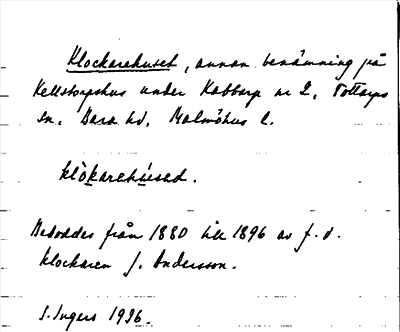 Klockarehuset, annan benämning på
Kellstorpshus under Kabbarp nr 2, Tottarps
sn. Bara hd, Malmöhus l.
klòkarehúsed.
Beboddes från 1880 till 1896 av f.d.
klockaren J. Andersson.
I. Ingers 1936.